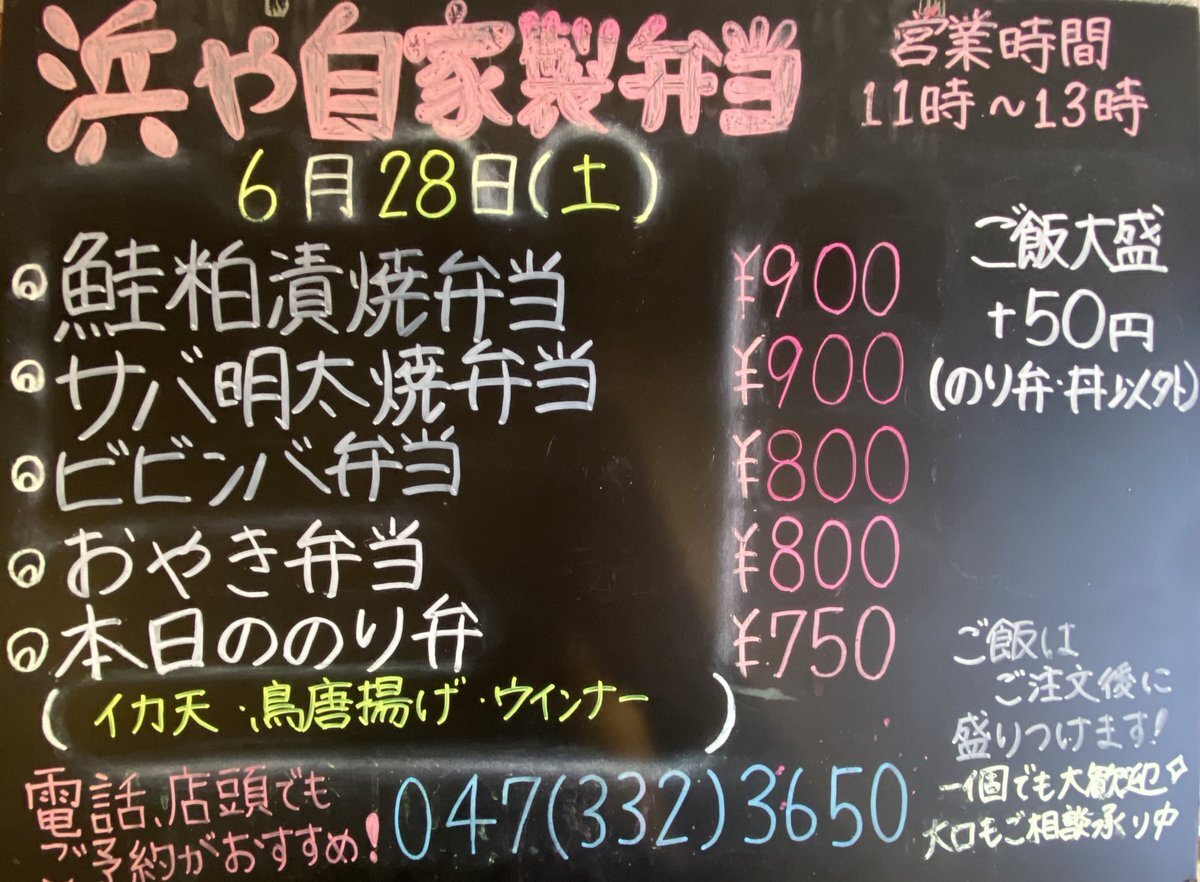 浜や自家製弁当
営業時間
11時〜13時
6月28日(土)
◎鮭粕漬焼弁当 ¥900
◎サバ明太焼弁当 ¥900
◎ビビンバ弁当 ¥800
◎おやき弁当 ¥800
◎本日ののり弁 ¥750
(イカ天・鳥唐揚げ・ウインナー)
ご飯大盛
+50円
(のり弁・丼以外)
ご飯は
ご注文後に
盛りつけます!
一個でも大歓迎
大口もご相談承り中
電話、店頭でも
ご予約がおすすめ!
047(332)3650